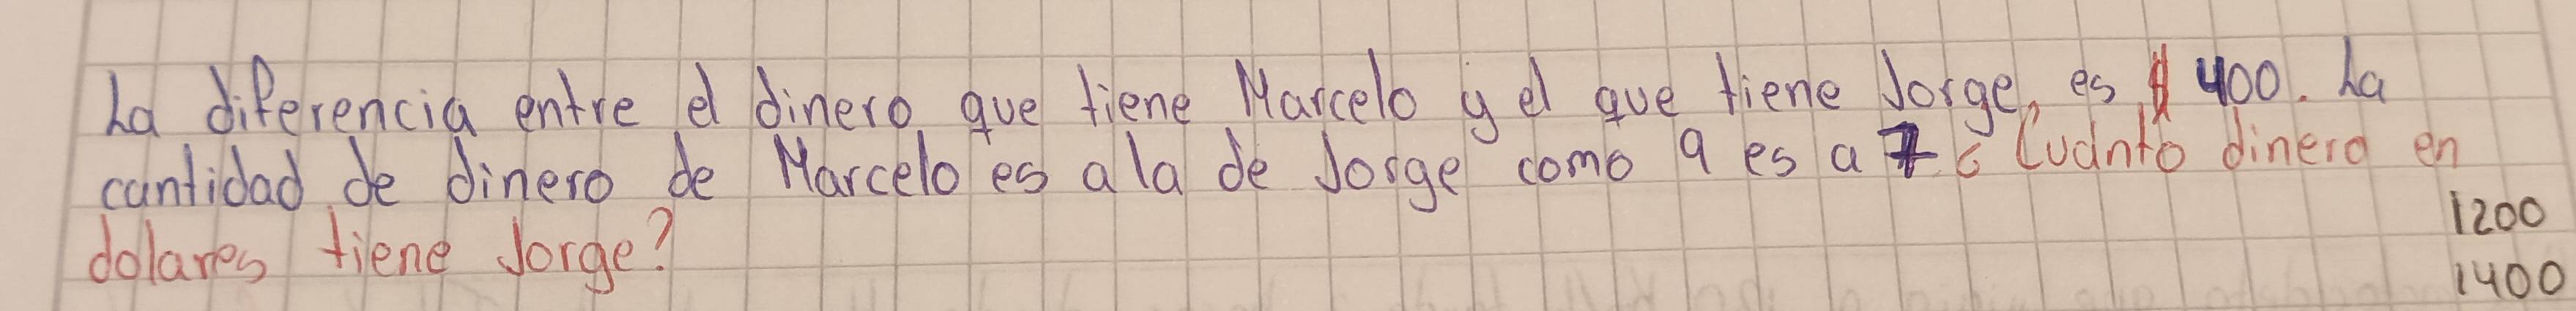 La diferencia entre el dinero que tiene Marcelo y el que tiene Jorge, es $ 400. La
cantidad de dinero de Marcelo es a la de Jorge como 9 es a 7 ¿Cuánto dinero en
dolares tiene Jorge?
1200
1400